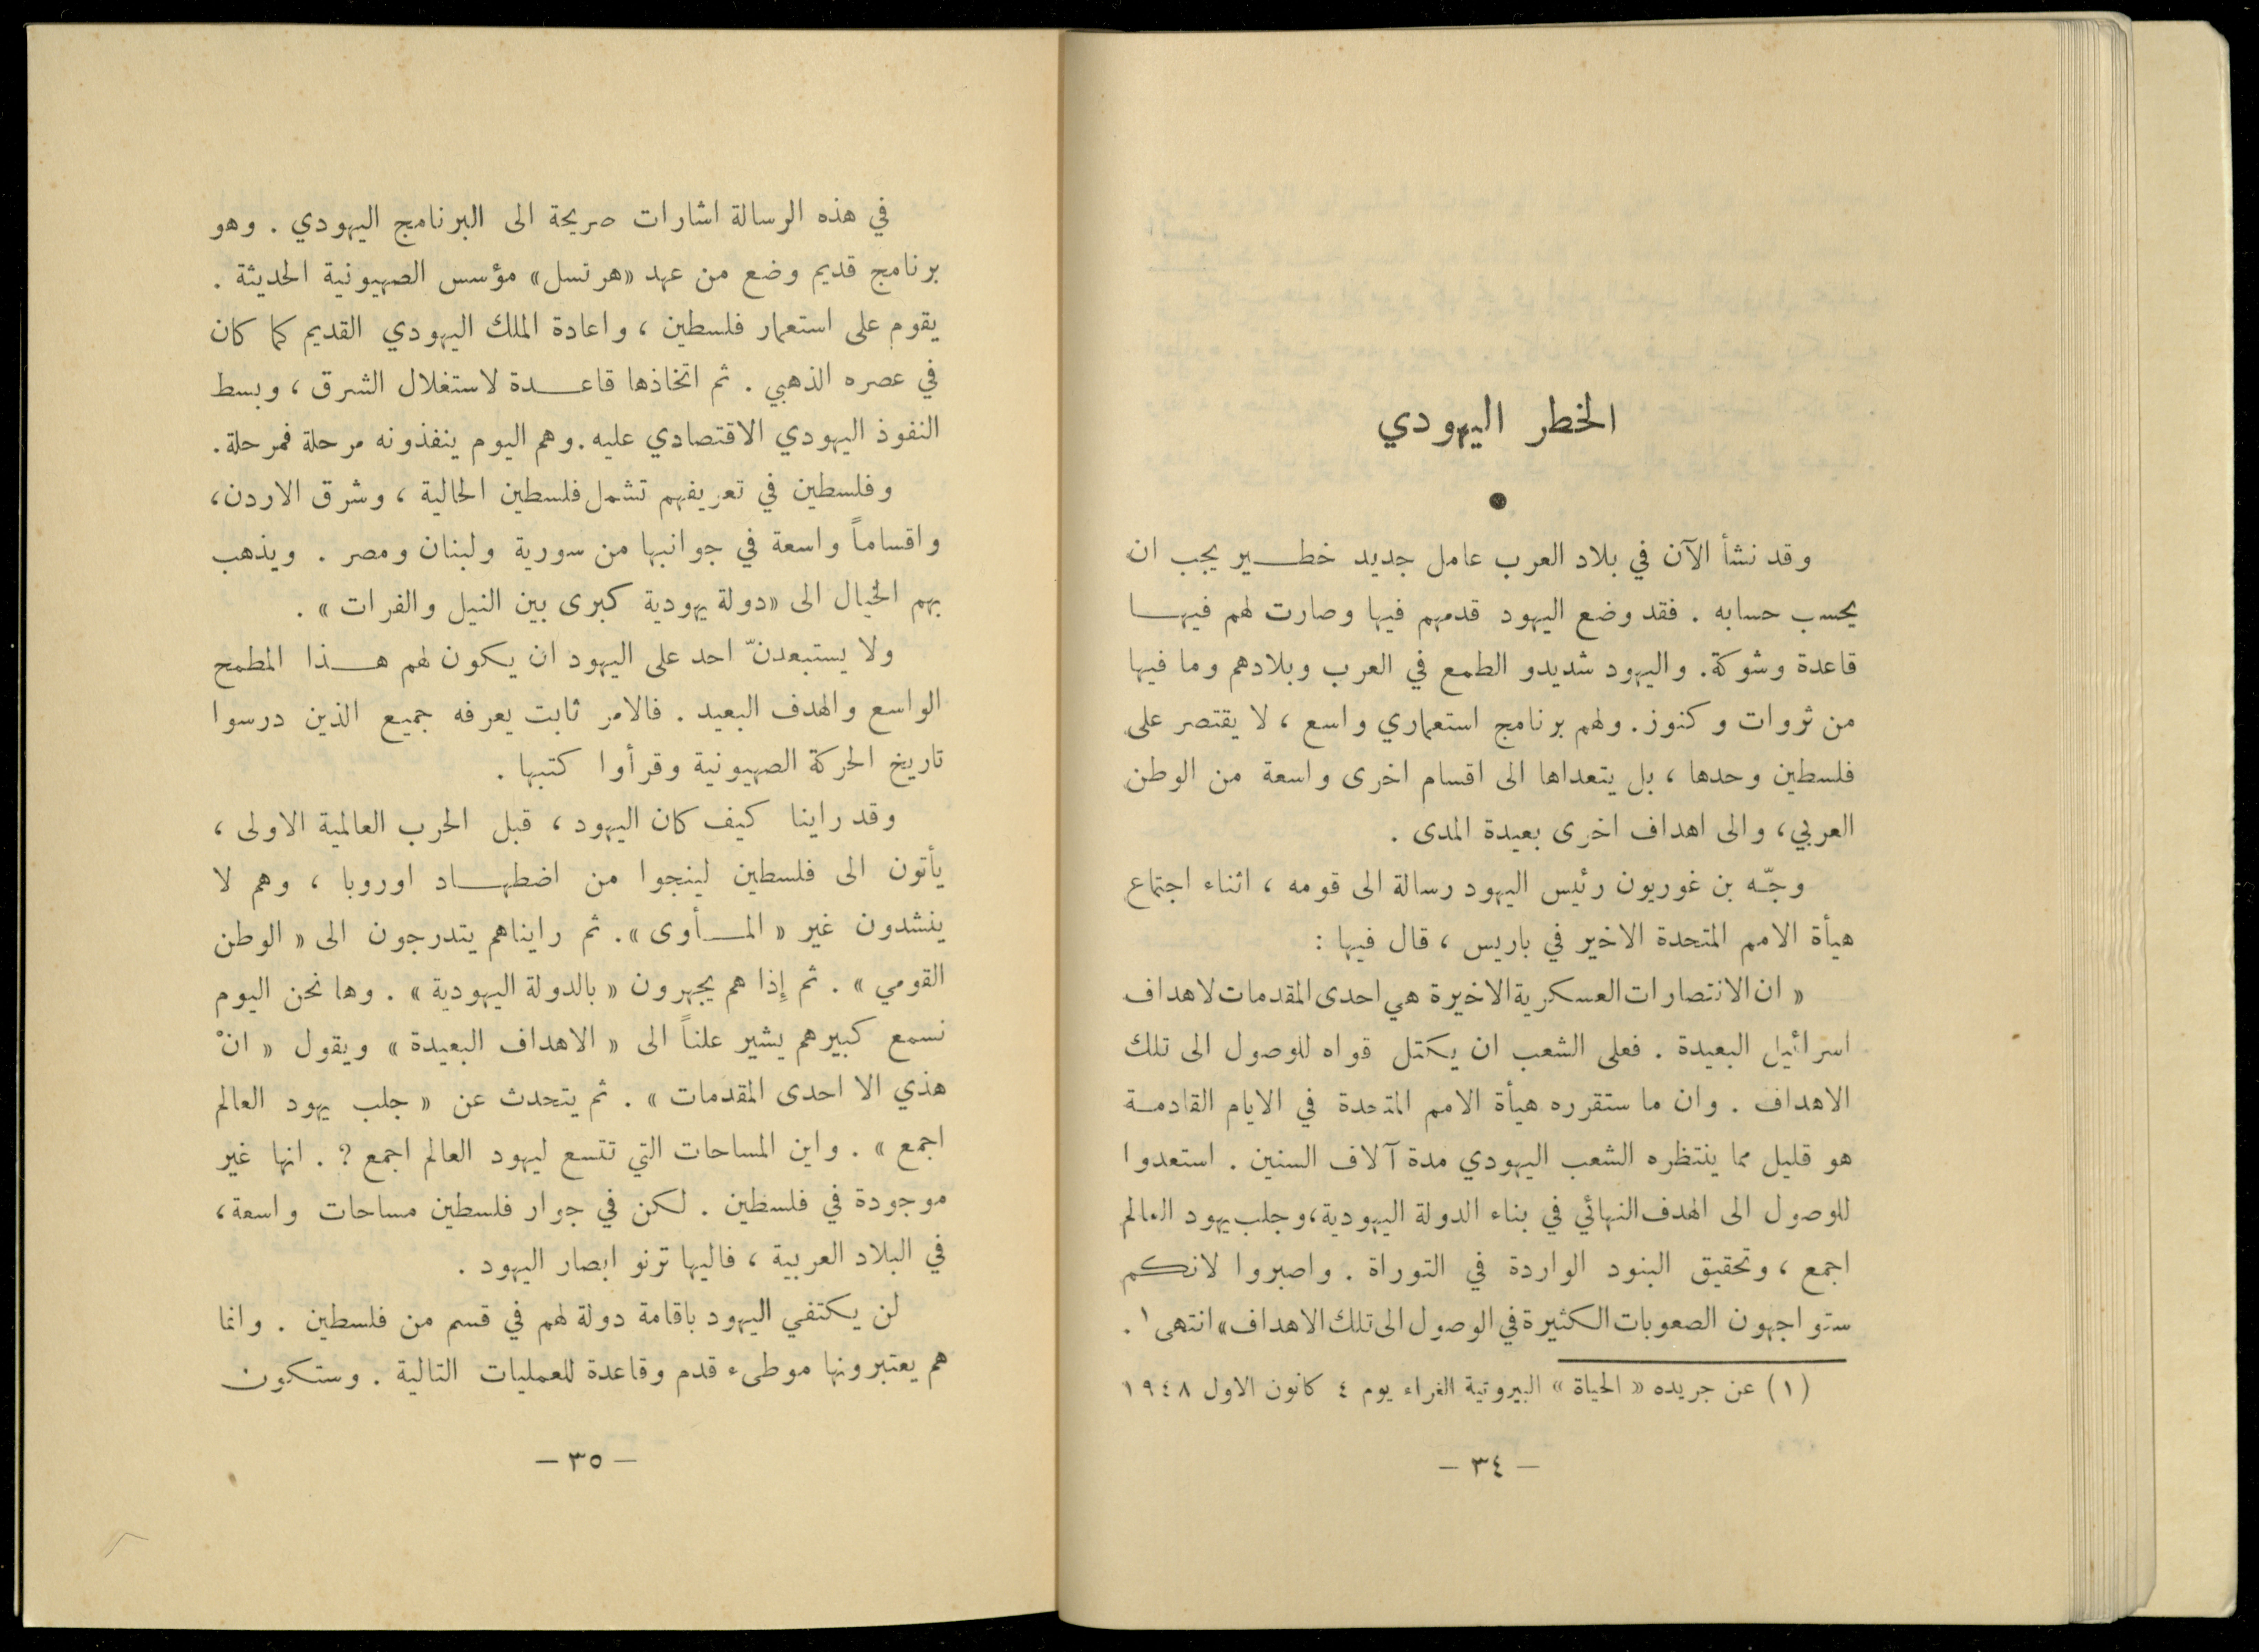 الخطر اليهودي
وقد نشأ الآن في بلاد العرب عامل جديد خطير يجب ان
يحسب حسابه . فقد وضع اليهود قدمهم فيها وصارت لهم فيها
قاعدة وشوكة. واليهود شديدو الطمع في العرب وبلادهم وما فيها
من ثروات وكنوز. ولهم برنامج استعماري واسع ، لا يقتصر على
فلسطين وحدها ، بل يتعداها الى اقسام اخرى واسعة من الوطن
العربي، والى اهداف اخرى بعيدة المدى .
وجّه بن غوريون رئيس اليهود رسالة الى قومه ، اثناء اجتماع
هيأة الامم المتحدة الاخير في باريس ، قال فيها :
« ان الانتصارات العسكرية الاخيرة هي احدى المقدمات لاهداف
اسرائيل البعيدة . فعلى الشعب ان يكتل قواه للوصول الى تلك
الاهداف . وان ما ستقرره هيأة الامم المتحدة في الايام القادمة
هو قليل مما ينتظره الشعب اليهودي مدة آلاف السنين . استعدوا
للوصول الى الهدف النهائي في بناء الدولة اليهودية، وجلب يهود العالم
اجمع ، وتحقيق البنود الواردة في التوراة . واصبروا لانكم
ستواجهون الصعوبات الكثيرة في الوصول الى تلك الاهداف» انتهى ١ .
(١) عن جريده « الحياة » البيروتية الغراء يوم ٤ كانون الاول ١٩٤٨
– ٣٤ –
في هذه الرسالة اشارات صريحة الى البرنامج اليهودي . وهو
برنامج قديم وضع من عهد «هرتسل» مؤسس الصهيونية الحديثة .
يقوم على استعمار فلسطين ، واعادة الملك اليهودي القديم كما كان
في عصره الذهبي . ثم اتخاذها قاعدة لاستغلال الشرق ، وبسط
النفوذ اليهودي الاقتصادي عليه. وهم اليوم ينفذونه مرحلة فمرحلة.
وفلسطين في تعريفهم تشمل فلسطين الحالية ، وشرق الاردن،
واقساماً واسعة في جوانبها من سورية ولبنان ومصر . ويذهب
بهم الخيال الى «دولة يهودية كبرى بين النيل والفرات» .
ولا يستبعدنّ احد على اليهود ان يكون لهم هذا المطمح
الواسع والهدف البعيد . فالامر ثابت يعرفه جميع الذين درسوا
تاريخ الحركة الصهيونية وقرأوا كتبها .
وقد راينا كيف كان اليهود ، قبل الحرب العالمية الاولى ،
يأتون الى فلسطين لينجوا من اضطهاد اوروبا ، وهم لا
ينشدون غير « المأوى ». ثم رايناهم يتدرجون الى « الوطن
القومي » . ثم إذا هم يجهرون « بالدولة اليهودية » . وها نحن اليوم
نسمع كبيرهم يشير علناً الى « الاهداف البعيدة » ويقول « انْ
هذي الا احدى المقدمات » . ثم يتحدث عن « جلب يهود العالم
اجمع » . واين المساحات التي تتسع ليهود العالم اجمع ? . انها غير
موجودة في فلسطين . لكن في جوار فلسطين مساحات واسعة،
في البلاد العربية ، فاليها ترنو ابصار اليهود .
لن يكتفي اليهود باقامة دولة لهم في قسم من فلسطين . وانما
هم يعتبرونها موطىء قدم وقاعدة للعمليات التالية . وستكون
– ٣٥ –